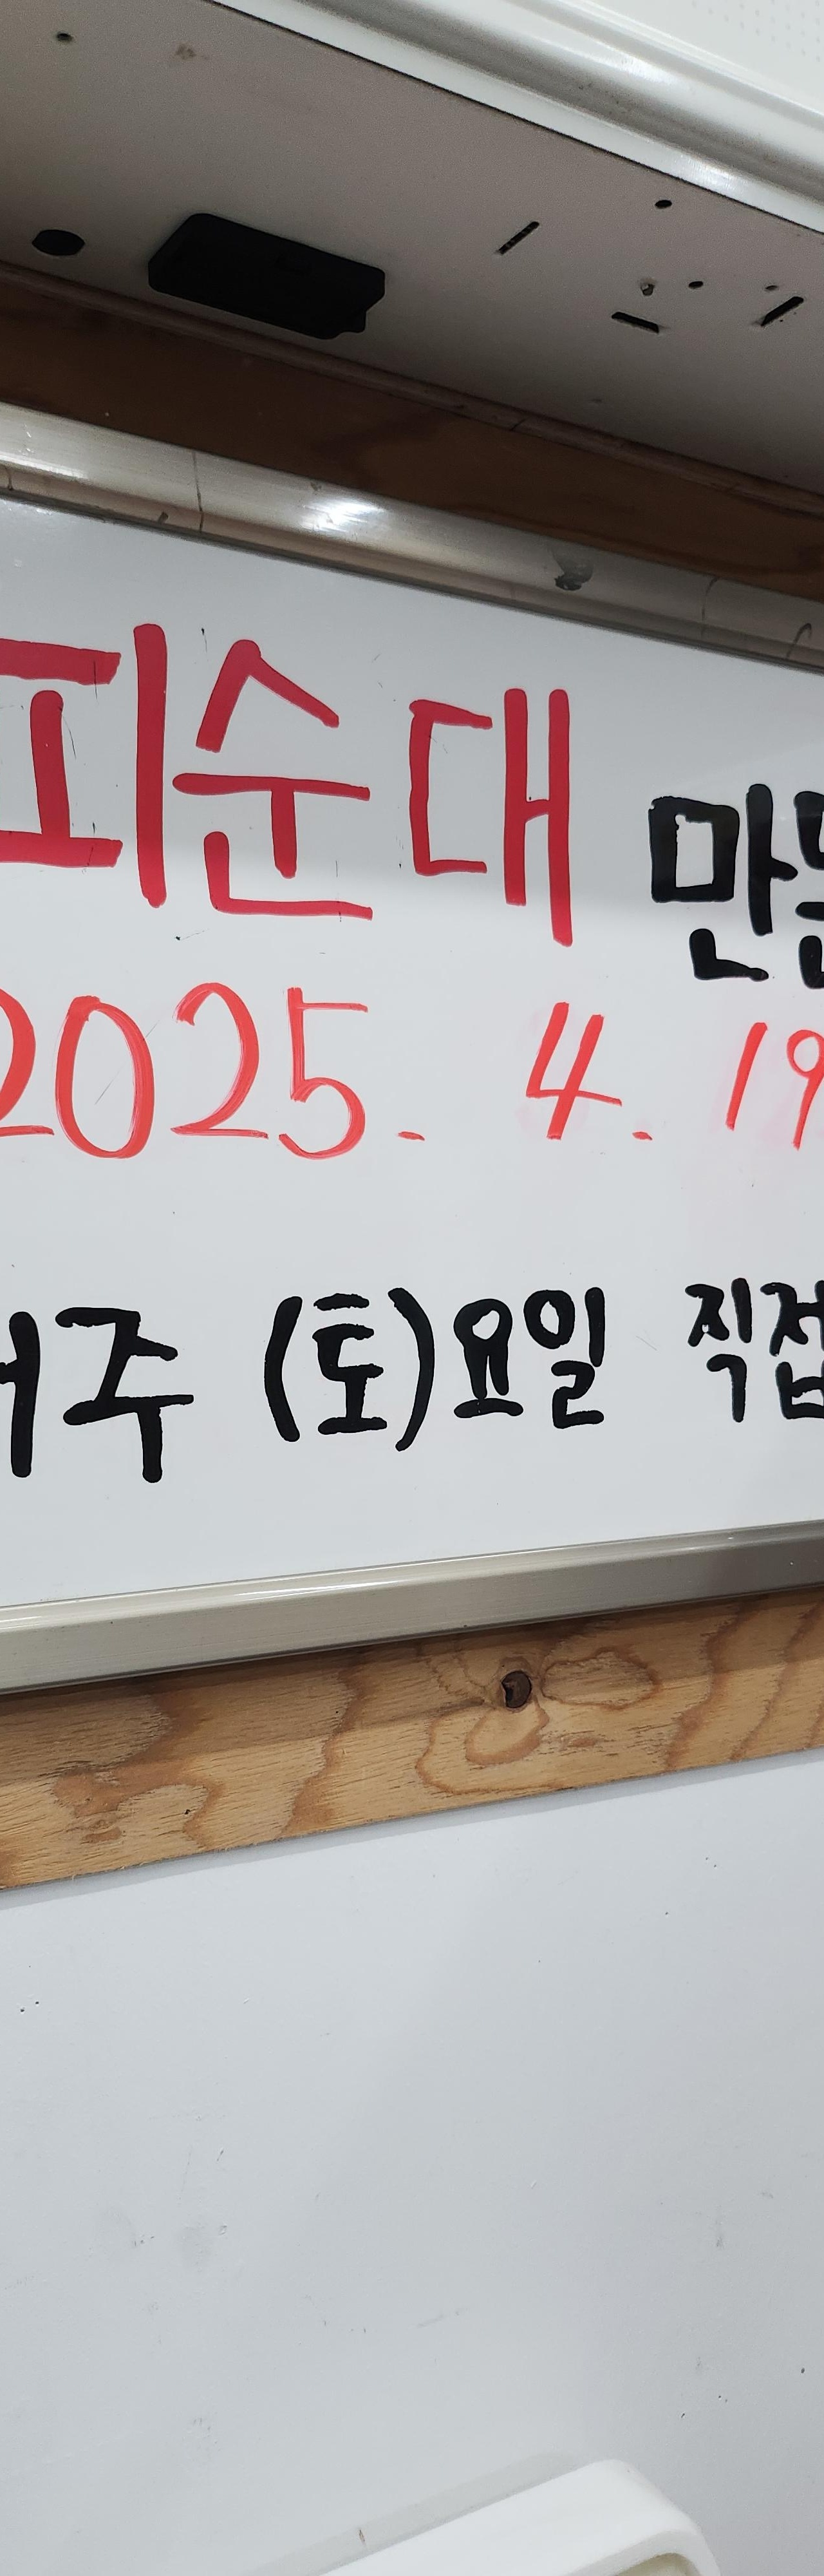 피순대
2025. 4. 19
(토)요일 직접